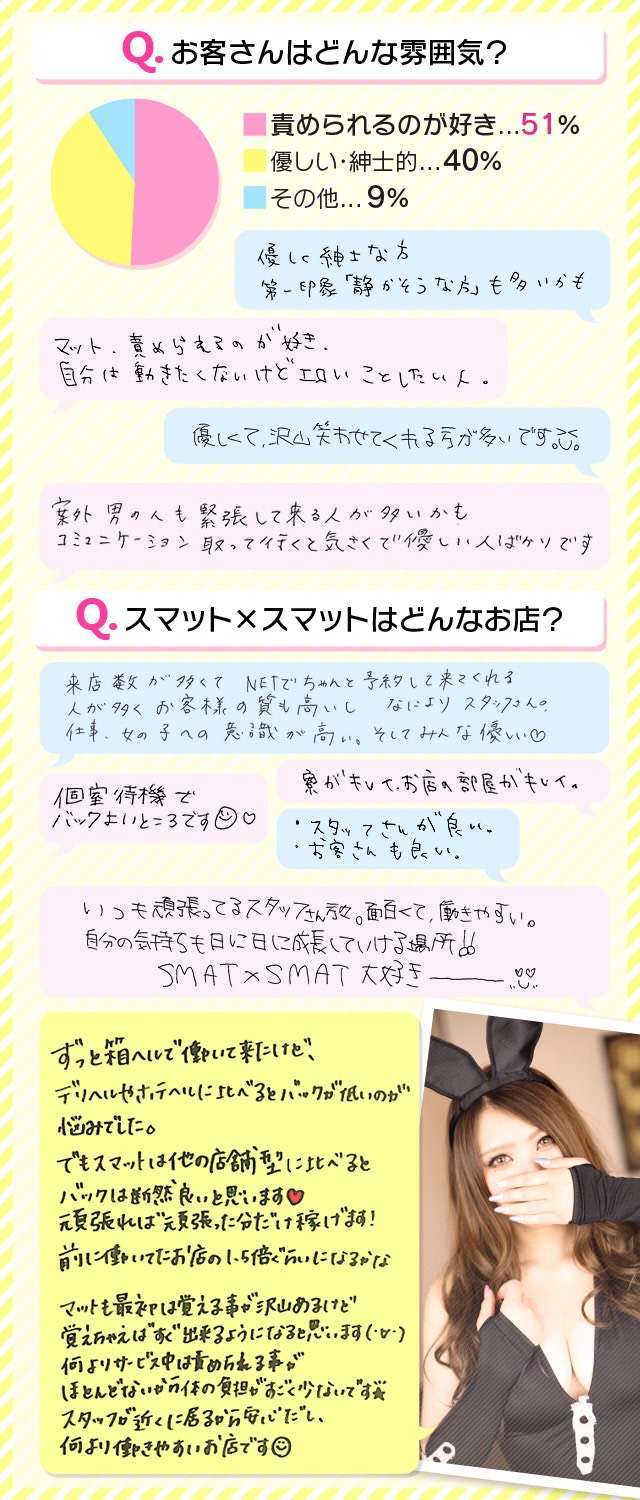 Q. お客さんはどんな雰囲気?
責められるのが好き...51%
優しい・紳士的...40%
その他...9%
優しく紳士な方
第一印象「静かそうな方」も多いかも
マット、責められるのが好き、
自分は動きたくないけどエロいことしたい人。
優しくて、沢山笑わせてくれる方が多いです。
案外男の人も緊張して来る人が多いかも
コミュニケーション取って行くと気さくで優しい人ばかりです
Q. スマット×スマットはどんなお店?
来店数が多くて NETでちゃんと予約して来てくれる
人が多くお客様の質も高いし なにより スタッフさんの
仕事、女の子への意識が高い。そしてみんな優しい♡
個室待機で
バックよいところです☺♡
寮がキレイ、お店の部屋がキレイ。
・スタッフさんが良い。
・お客さんも良い。
いつも頑張ってるスタッフさん方。面白くて、働きやすい。
自分の気持ちも日に日に成長していける場所!!
SMAT×SMAT 大好きーーー
ずっと箱ヘルで働いて来たけど、
デリヘルやホテヘルに比べるとバックが低いのが
悩みでした。
でもスマットは他の店舗型に比べると
バックは断然良いと思います♥
頑張れば頑張った分だけ稼げます!
前に働いてたお店の1.5倍ぐらいになるかな
マットも最初は覚える事が沢山あるけど
覚えちゃえばすぐ出来るようになると思います(・∀・)
何よりサービス中は責められる事が
ほとんどないから体の負担がすごく少ないです
スタッフが近くに居るから安心だし、
何より働きやすいお店です☺